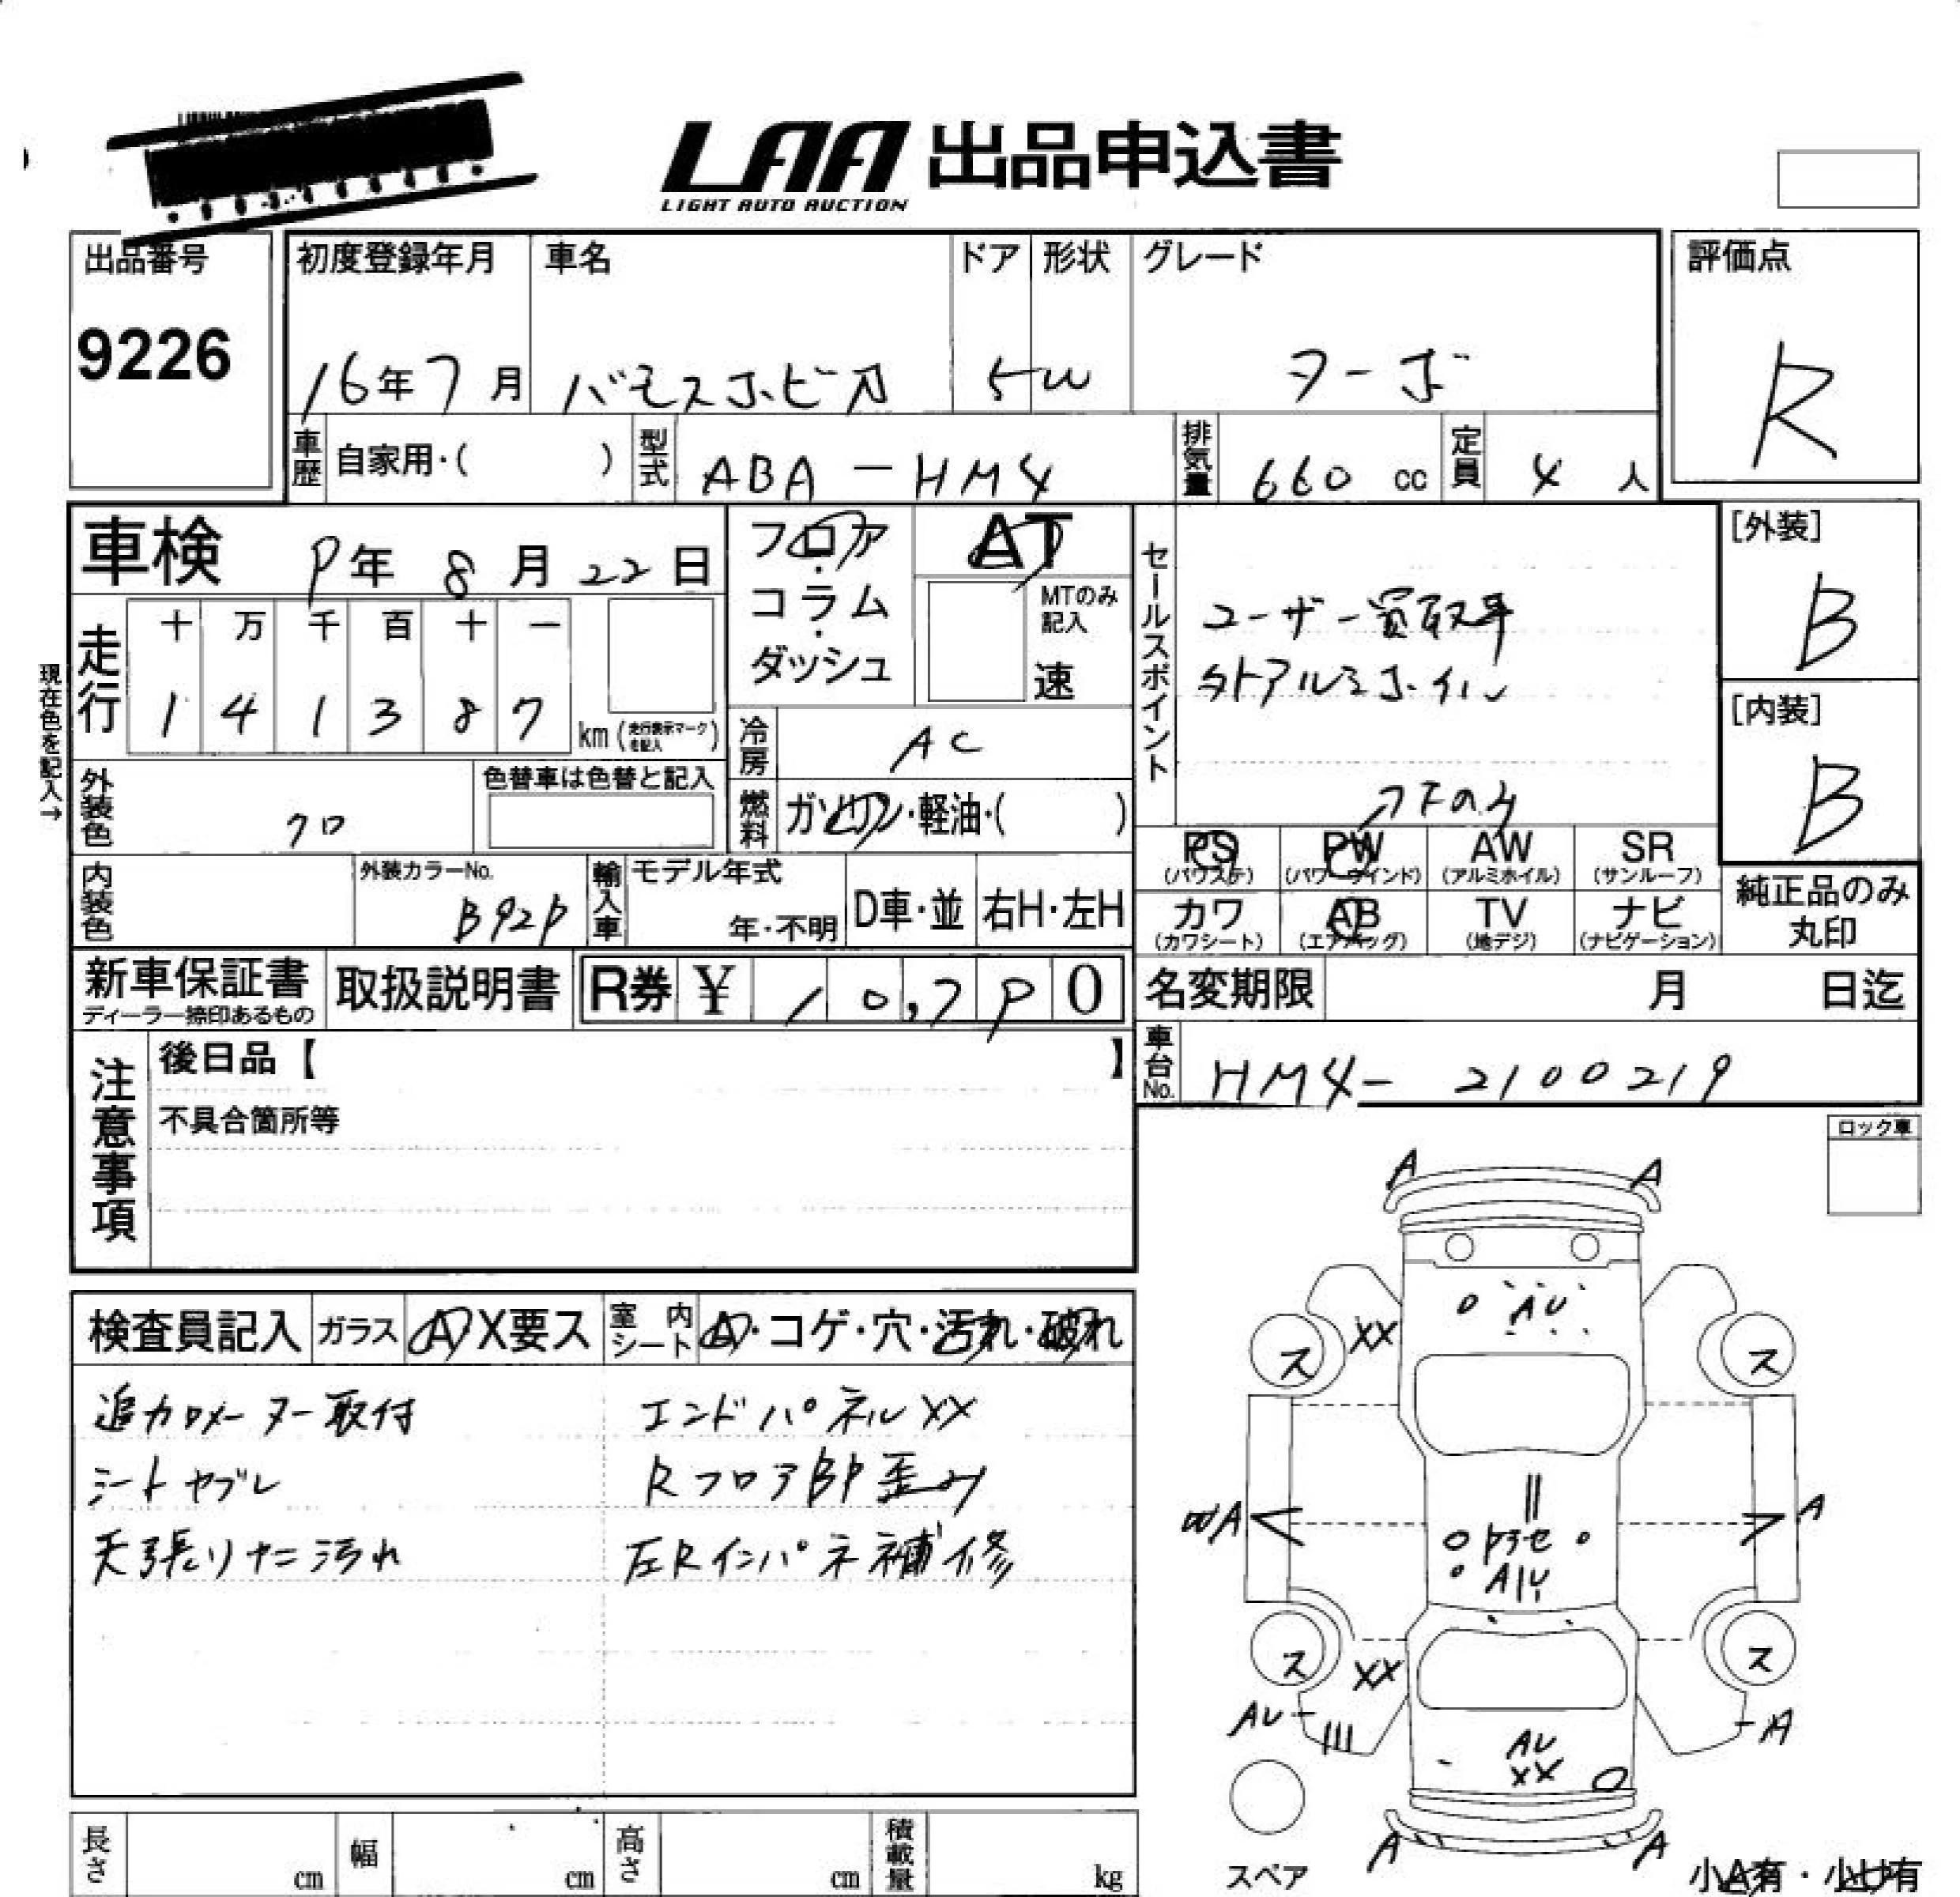 LAA 出品申込書
LIGHT AUTO AUCTION
出品番号 初度登録年月 車名 ドア 形状 グレード 評価点
9226 16年7月 バモスホビオ 5 W ターボ R
車歴 自家用・( ) 型式 ABA-HM4 排気量 660 cc 定員 4 人
車検 9年 8月 22日 フロア AT セールスポイント [外装]
コラム MTのみ記入 B
ダッシュ 速
走行 十 万 千 百 十 一 ユーザー買取車
1 4 1 3 8 7 km(走行表示マークを記入) 外アルミホイル [内装]
現在色を記入→ 冷房 AC B
外装色 クロ 色替車は色替と記入 燃料 ガソリン・軽油・( )
PS (パワステ) PW (パワーウインド) AW (アルミホイル) SR (サンルーフ)
内装色 外装カラーNo. B92P 輸入車 モデル年式 年・不明 D車・並 右H・左H
カワ (カワシート) AB (エアバッグ) TV (地デジ) ナビ (ナビゲーション) 純正品のみ丸印
新車保証書 ディーラー捺印あるもの 取扱説明書 R券 ¥ 10,790 名変期限 月 日迄
注意事項 後日品【 】 車台No. HM4-2100219
不具合箇所等 ロック車
検査員記入 ガラス A X要ス 室内シート A・コゲ・穴・汚れ・破れ
追加メーター取付 エンドパネルXX
シートヤブレ RフロアBP歪み
天張りキズ汚れ 左Rインパネ補修
A A
AU
XX
ス ス
A A
AU
ス ス
XX
AU A
AU
XX
A A
スペア 小A有・小U有
長さ cm 幅 cm 高さ cm 積載量 kg